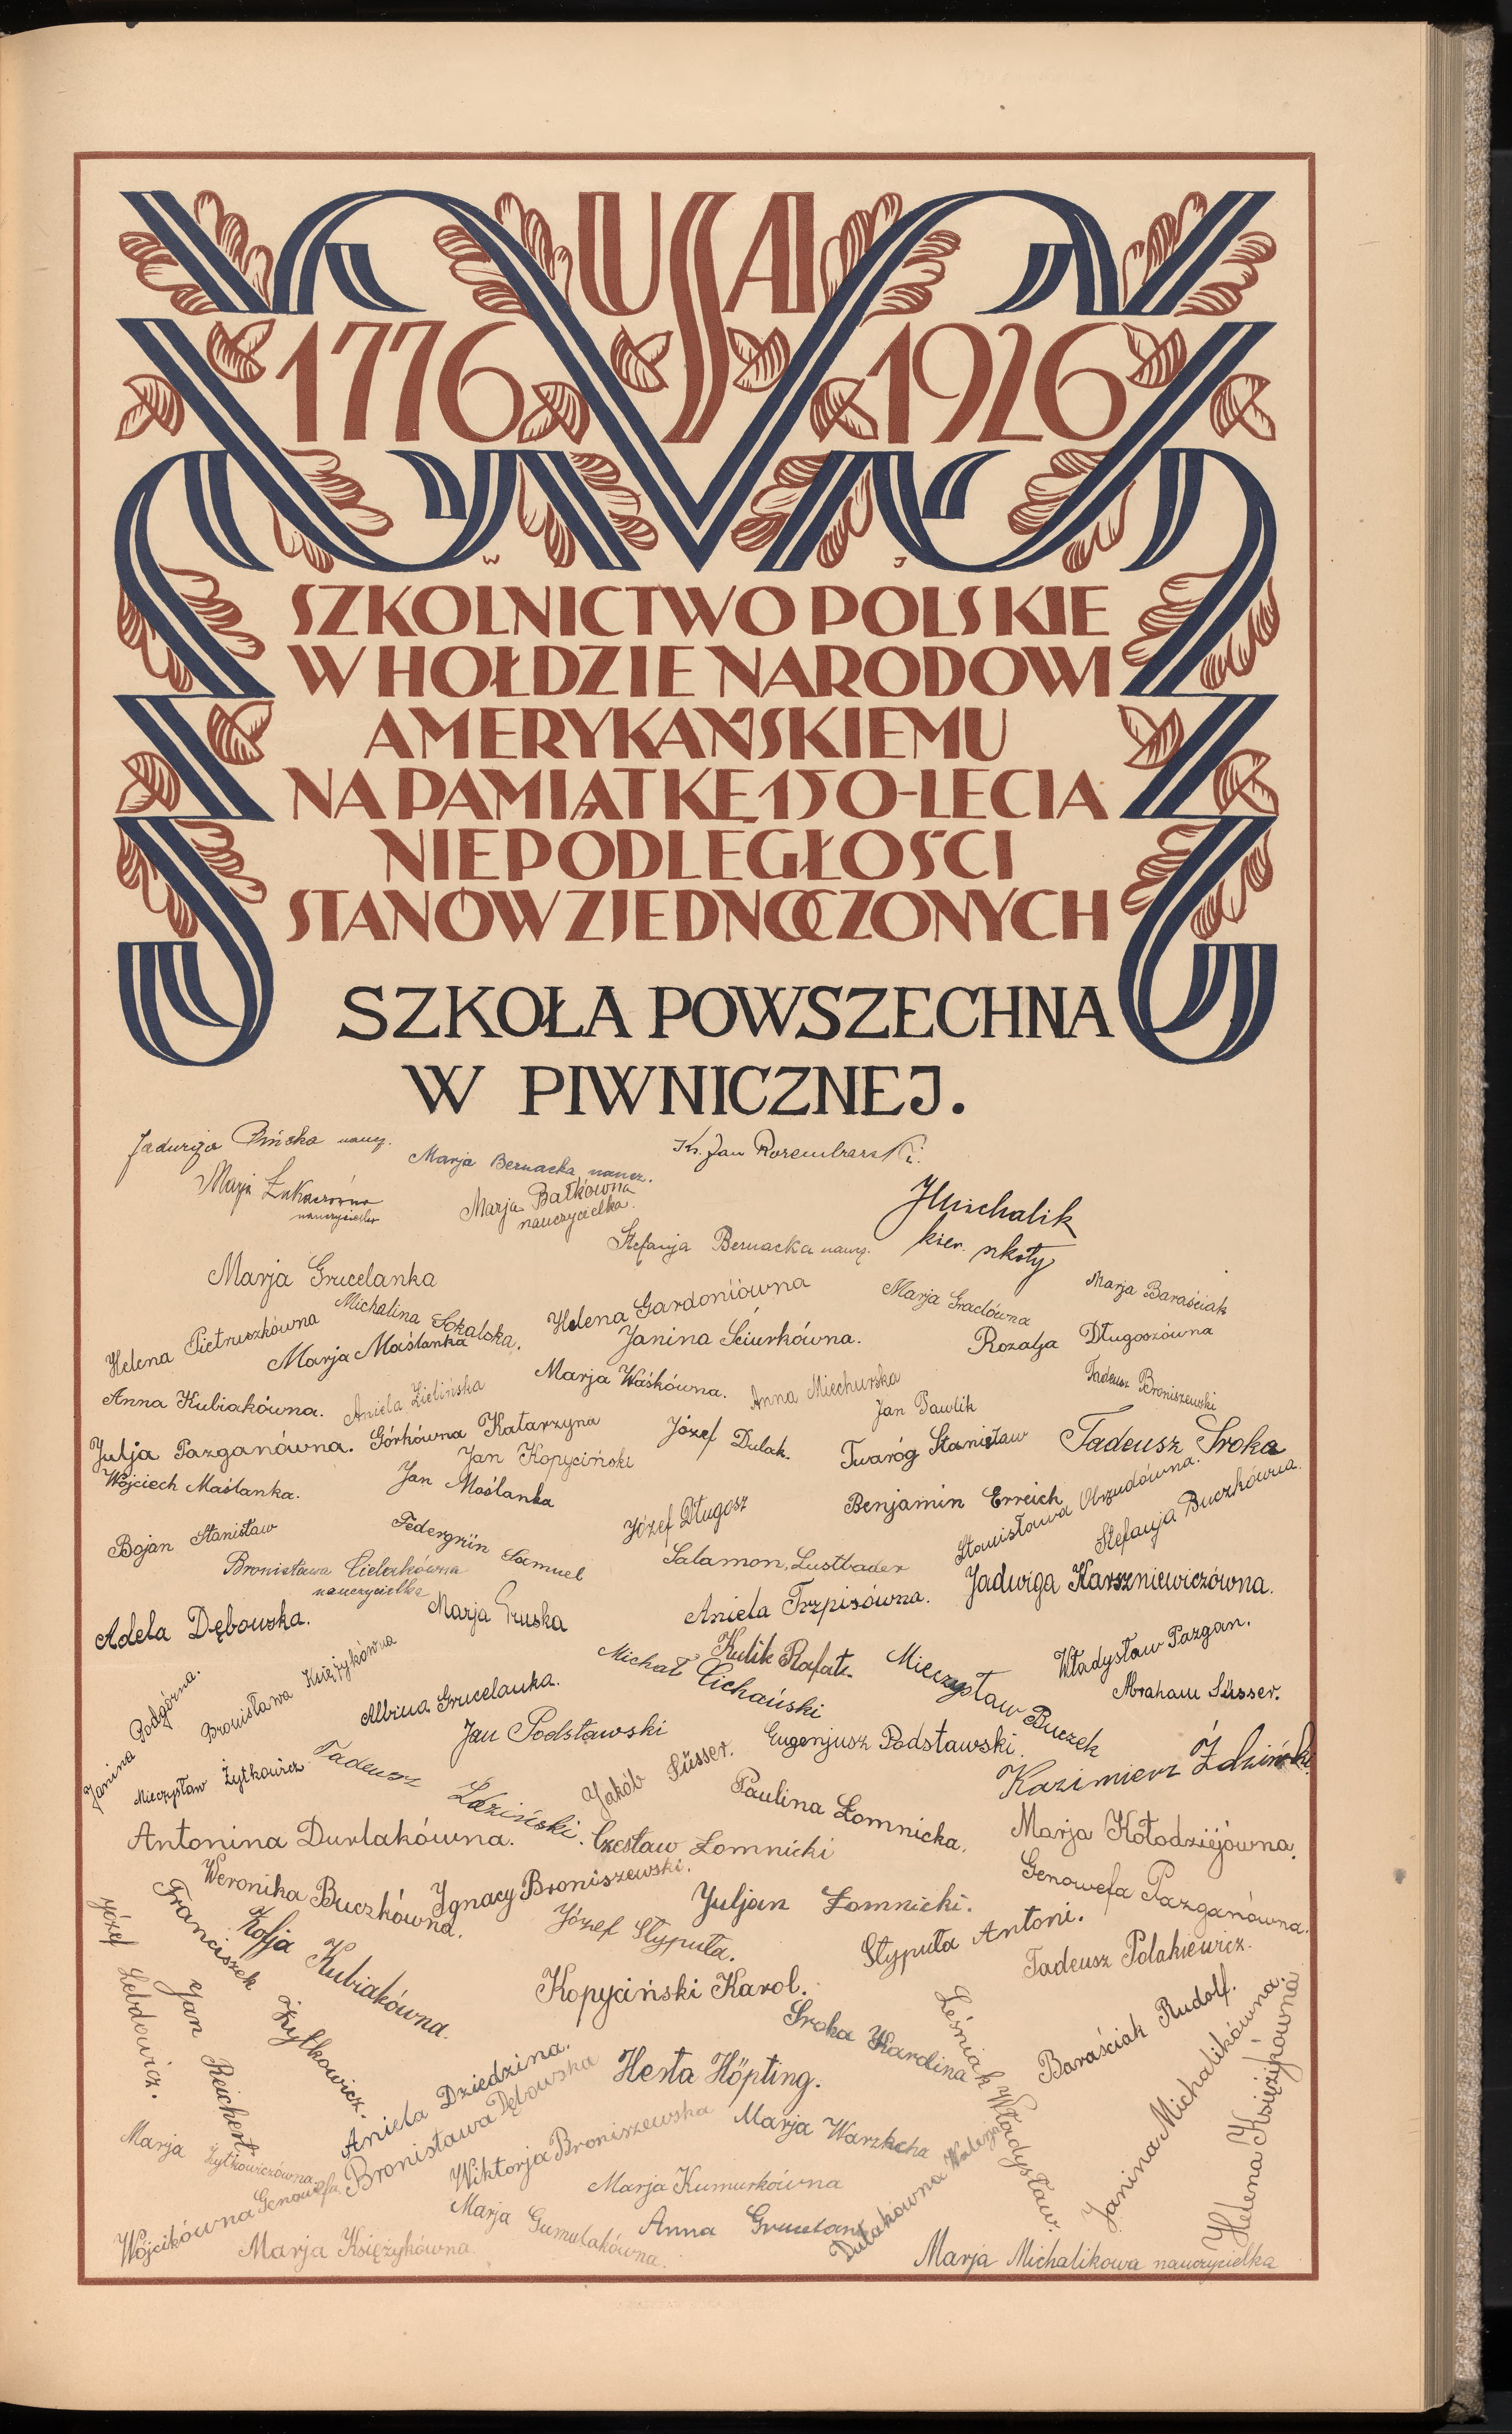 USA
1776 1926
W J
SZKOLNICTWO POLSKIE
W HOŁDZIE NARODOWI
AMERYKAŃSKIEMU
NA PAMIĄTKĘ 150-LECIA
NIEPODLEGŁOŚCI
STANÓW ZJEDNOCZONYCH
SZKOŁA POWSZECHNA
W PIWNICZNEJ.
Jadwiga naucz.
Marja Bernacka, naucz.
Ks. Jan
Marja
nauczycielka
Marja Bałkówna
nauczycielka.
JMichalik
kier. szkoły
Stefanja Bernacka naucz.
Marja Grucelanka
Marja Baraściak
Helena Pietruszkówna
Michalina Sokalska.
Helena Gardoniówna
Marja Graclówna
Marja Maślanka
Janina Sciurkówna.
Rozalja Długoszówna
Anna Kubiakówna.
Aniela Zielińska
Marja Waśkówna.
Anna Miechurska
Tadeusz Broniszewski
Jan Pawlik
Julja Pazganówna.
Górkówna Katarzyna
Józef Dulak.
Twaróg Stanisław
Tadeusz Sroka
Jan Kopyciński
Wojciech Maślanka.
Jan Maślanka
Józef Długosz
Benjamin Erreich
Stanisława Obrzudówna.
Stefanja Buczkówna.
Bojan Stanisław
Federgrün Samuel
Salamon, Lustbader
Bronisława Cielakówna
nauczycielka
Jadwiga Karszniewiczówna.
Adela Dębowska.
Marja Gruska
Aniela Trzpisówna.
Janina Podgórna.
Bronisława Księżykówna
Albina Grucelanka.
Michał Cichański
Kulik Rafał.
Mieczysław Buczek
Władysław Pazgan.
Abraham Süsser.
Jan Podstawski
Eugenjusz Podstawski.
Mieczysław Żytkowicz
Tadeusz Ździński.
Jakób Süsser.
Paulina Łomnicka.
Kazimierz Ździński.
Antonina Durlakówna.
Czesław Łomnicki
Marja Kołodziejówna.
Weronika Buczkówna.
Ignacy Broniszewski.
Juljan Łomnicki.
Genowefa Pazganówna.
Józef Lebdowicz.
Franciszek Żytkowicz.
Zofja Kubiakówna.
Józef Stypuła.
Stypuła Antoni.
Tadeusz Polakiewicz.
Jan Reichert.
Kopyciński Karol.
Sroka Karolina
Leśniak Władysław.
Baraściak Rudolf.
Janina Michalikówna.
Helena Księżykówna
Aniela Dziedzina.
Bronisława Dębowska
Herta Höpting.
Marja Żytkowiczówna
Wiktorja Broniszewska
Marja Warzkcha
Wójcikówna Genowefa
Marja Kumurkówna
Dulakówna Walerja
Marja Księżykówna.
Marja Gumulakówna.
Anna
Marja Michalikowa nauczycielka